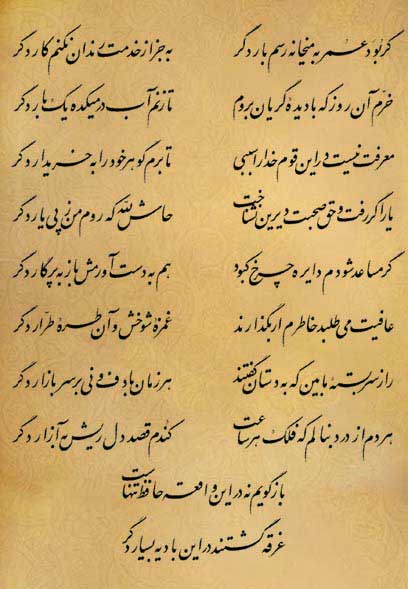 گر بود عمر به میخانه رسم بار دگر
به جز از خدمت رندان نکنم کار دگر
خرم آن روز که با دیده گریان بروم
تا زنم آب در میکده یک بار دگر
معرفت نیست در این قوم خدا را سببی
تا برم گوهر خود را به خریدار دگر
یار اگر رفت و حق صحبت دیرین نشناخت
حاش لله که روم من ز پی یار دگر
گر مساعد شودم دایره چرخ کبود
هم به دست آورمش باز به پرگار دگر
عافیت می طلبد خاطرم ار بگذارند
غمزه شوخش و آن طره طرار دگر
راز سربسته ما بین که به دستان گفتند
هر زمان با دف و نی بر سر بازار دگر
هر دم از درد بنالم که فلک هر ساعت
کندم قصد دل ریش به آزار دگر
بازگویم نه در این واقعه حافظ تنهاست
غرقه گشتند در این بادیه بسیار دگر